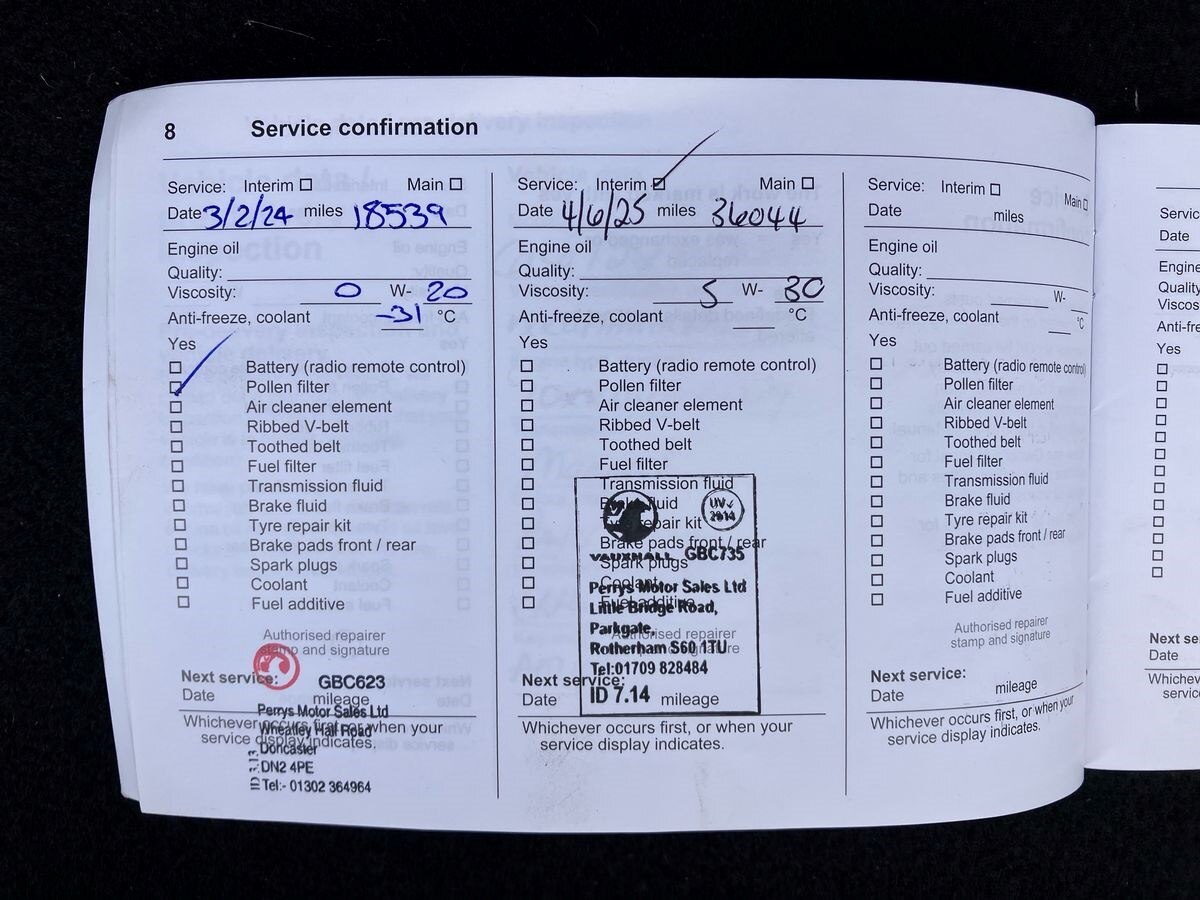 8 Service confirmation
Service: Interim ☐ Main ☐
Date 3/2/24 miles 18539
Engine oil
Quality:
Viscosity: 0 W- 20
Anti-freeze, coolant -31 °C
Yes
☐ Battery (radio remote control)
☑ Pollen filter
☐ Air cleaner element
☐ Ribbed V-belt
☐ Toothed belt
☐ Fuel filter
☐ Transmission fluid
☐ Brake fluid
☐ Tyre repair kit
☐ Brake pads front / rear
☐ Spark plugs
☐ Coolant
☐ Fuel additive
Authorised repairer
stamp and signature
Next service:
GBC623
Date mileage
Perrys Motor Sales Ltd
Whichever occurs first, or when your
Wheatley Hall Road
service display indicates.
Doncaster
DN2 4PE
Tel:- 01302 364964
Service: Interim ☑ Main ☐
Date 4/6/25 miles 36044
Engine oil
Quality:
Viscosity: 5 W- 30
Anti-freeze, coolant °C
Yes
☐ Battery (radio remote control)
☐ Pollen filter
☐ Air cleaner element
☐ Ribbed V-belt
☐ Toothed belt
☐ Fuel filter
☐ Transmission fluid
☐ Brake fluid
☐ Tyre repair kit
☐ Brake pads front / rear
☐ Spark plugs
☐ Coolant
☐ Fuel additive
Authorised repairer
stamp and signature
2014
VAUXHALL GBC735
Perrys Motor Sales Ltd
Little Bridge Road,
Parkgate,
Rotherham S60 1TU
Tel:01709 828484
ID 7.14
Next service:
Date mileage
Whichever occurs first, or when your
service display indicates.
Service: Interim ☐ Main ☐
Date miles
Engine oil
Quality:
Viscosity: W-
Anti-freeze, coolant °C
Yes
☐ Battery (radio remote control)
☐ Pollen filter
☐ Air cleaner element
☐ Ribbed V-belt
☐ Toothed belt
☐ Fuel filter
☐ Transmission fluid
☐ Brake fluid
☐ Tyre repair kit
☐ Brake pads front / rear
☐ Spark plugs
☐ Coolant
☐ Fuel additive
Authorised repairer
stamp and signature
Next service:
Date mileage
Whichever occurs first, or when your
service display indicates.
Servic
Date
Engine
Quality
Viscos
Anti-fre
Yes
Next se
Date
Whichev
service